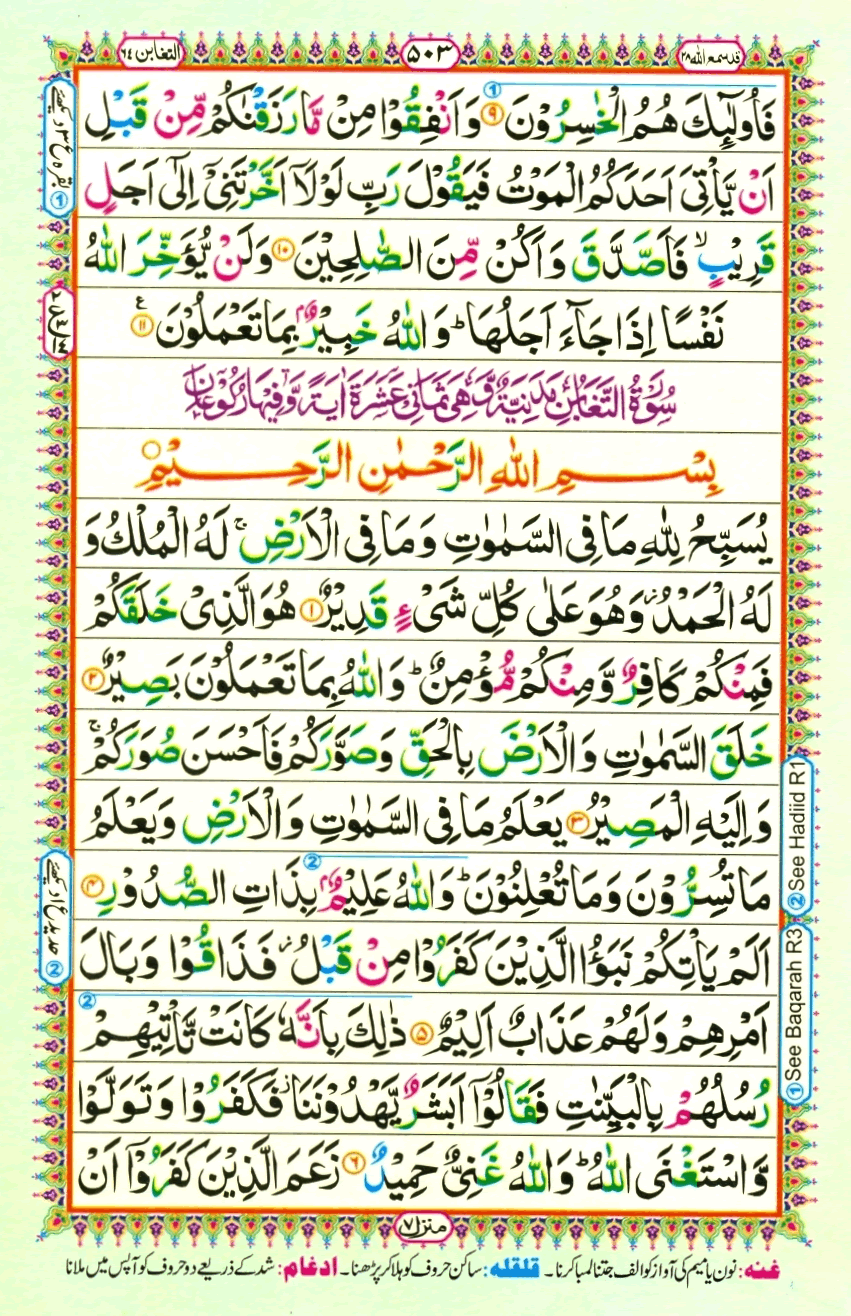 قد سمع الله ٢٨
۵۰۳
التغابن ٦٤
فَاُولٰٓئِكَ هُمُ الْخٰسِرُوْنَ ۹ وَاَنْفِقُوْا مِنْ مَّا رَزَقْنٰكُمْ مِّنْ قَبْلِ
اَنْ يَّاْتِيَ اَحَدَكُمُ الْمَوْتُ فَيَقُوْلَ رَبِّ لَوْلَاۤ اَخَّرْتَنِيْۤ اِلٰۤى اَجَلٍ
قَرِيْبٍ ۙ فَاَصَّدَّقَ وَاَكُنْ مِّنَ الصّٰلِحِيْنَ ۱۰ وَلَنْ يُّؤَخِّرَ اللّٰهُ
نَفْسًا اِذَا جَآءَ اَجَلُهَا ؕ وَاللّٰهُ خَبِيْرٌۢ بِمَا تَعْمَلُوْنَ ۱۱ ع
سُوْرَةُ التَّغَابُنِ مَدَنِيَّةٌ وَّهِيَ ثَمَانِيَ عَشْرَةَ اٰيَةً وَّفِيْهَا رُكُوْعَانِ
بِسْمِ اللّٰهِ الرَّحْمٰنِ الرَّحِيْمِ
يُسَبِّحُ لِلّٰهِ مَا فِي السَّمٰوٰتِ وَمَا فِي الْاَرْضِ ۚ لَهُ الْمُلْكُ وَ
لَهُ الْحَمْدُ ؗ وَهُوَ عَلٰى كُلِّ شَيْءٍ قَدِيْرٌ ۱ هُوَ الَّذِيْ خَلَقَكُمْ
فَمِنْكُمْ كَافِرٌ وَّمِنْكُمْ مُّؤْمِنٌ ؕ وَاللّٰهُ بِمَا تَعْمَلُوْنَ بَصِيْرٌ ۲
خَلَقَ السَّمٰوٰتِ وَالْاَرْضَ بِالْحَقِّ وَصَوَّرَكُمْ فَاَحْسَنَ صُوَرَكُمْ ۚ
وَاِلَيْهِ الْمَصِيْرُ ۳ يَعْلَمُ مَا فِي السَّمٰوٰتِ وَالْاَرْضِ وَيَعْلَمُ
مَا تُسِرُّوْنَ وَمَا تُعْلِنُوْنَ ؕ وَاللّٰهُ عَلِيْمٌۢ بِذَاتِ الصُّدُوْرِ ۴
اَلَمْ يَاْتِكُمْ نَبَؤُا الَّذِيْنَ كَفَرُوْا مِنْ قَبْلُ ؗ فَذَاقُوْا وَبَالَ
اَمْرِهِمْ وَلَهُمْ عَذَابٌ اَلِيْمٌ ۵ ذٰلِكَ بِاَنَّهٗ كَانَتْ تَّاْتِيْهِمْ
رُسُلُهُمْ بِالْبَيِّنٰتِ فَقَالُوْۤا اَبَشَرٌ يَّهْدُوْنَنَا ؗ فَكَفَرُوْا وَتَوَلَّوْا
وَّاسْتَغْنَى اللّٰهُ ؕ وَاللّٰهُ غَنِيٌّ حَمِيْدٌ ۶ زَعَمَ الَّذِيْنَ كَفَرُوْۤا اَنْ
منزل ۷
غنه: نون یا میم کی آواز کو الف جتنا لمبا کرنا ۔ قلقله: ساکن حروف کو ہلا کر پڑھنا ۔ ادغام: شد کے ذریعے دو حروف کو آپس میں ملانا
② See Hadiid R1
① See Baqarah R3
② حدید ع ۱ دیکھئے